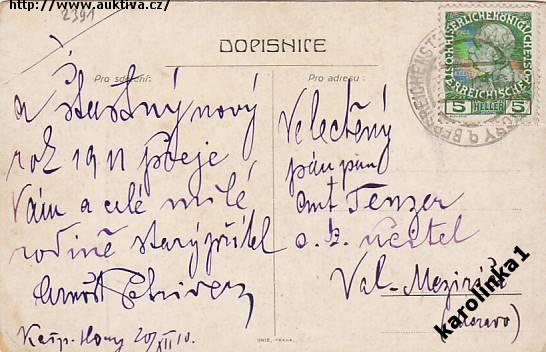 http://www.auktiva.cz/
2391
DOPISNICE
Pro sdělení:
Pro adresu:
a Šťastný nový
rok 1911 přeje
Vám a celé milé
rodině starý přítel
Arnošt
Kašp. Hory 20/XII 10.
Velectěný
pán pan
Ant Tenzer
o. z. učitel
Val-Meziříčí
(Morava)
KAISERLICHEKÖNIGLICHE
ÖSTERREICHISCHE
5 HELLER 5
BERGREICHENSTEIN
HORY
UNIE, PRAHA.
karolinka1